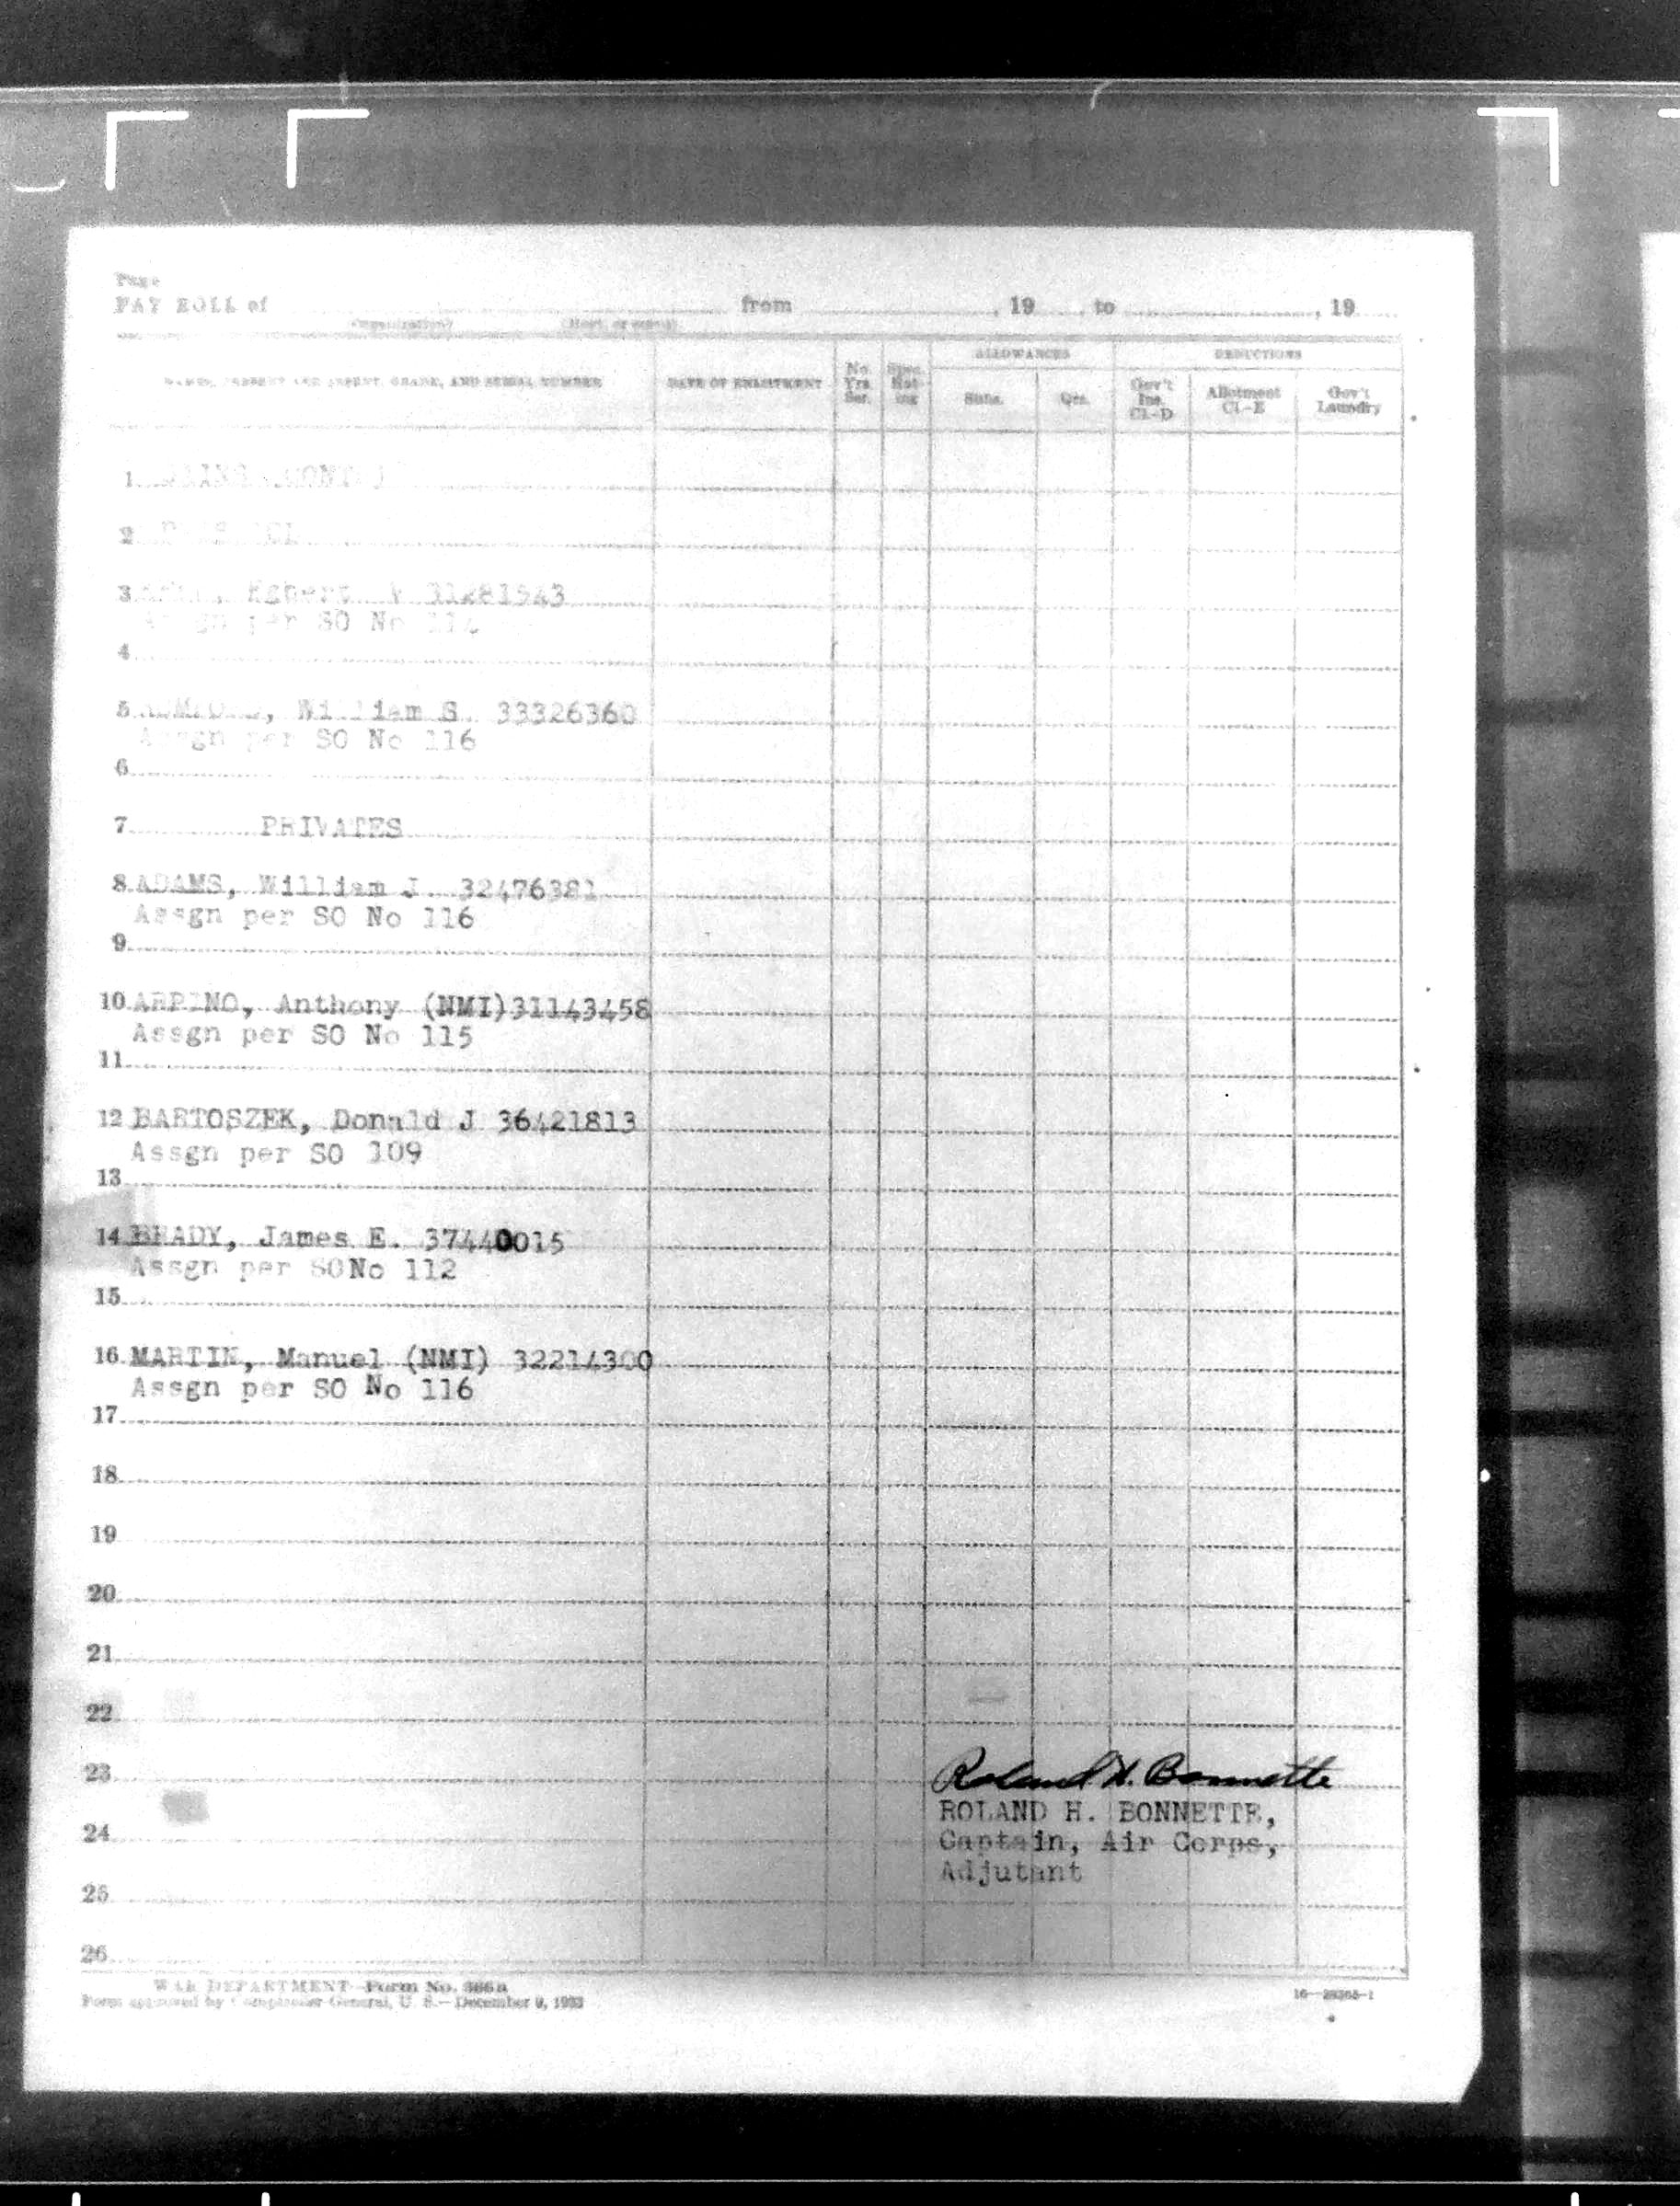 Page
PAY ROLL of from , 19 to , 19
(Organization)
NAME, PRESENT AND GRADE, AND SERIAL NUMBER
DATE OF ENLISTMENT
No. Yrs. Ser.
Spec. Rat- ing
ALLOWANCES
Subs.
Qrs.
DEDUCTIONS
Gov't Ins. Cl.-D
Allotment Cl.-E
Gov't Laundry
1
2
3 31281543
SO No
4
5 William S. 33326360
Assgn per SO No 116
6
7 PRIVATES
8 ADAMS, William J. 32476381
Assgn per SO No 116
9
10 ARPINO, Anthony (NMI)31143458
Assgn per SO No 115
11
12 BARTOSZEK, Donald J 36421813
Assgn per SO 109
13
14 BRADY, James E. 37440015
Assgn per SONo 112
15
16 MARTIN, Manuel (NMI) 32214300
Assgn per SO No 116
17
18
19
20
21
22
23
Roland H. Bonnette
ROLAND H. BONNETTE,
24
Captain, Air Corps,
Adjutant
25
26
WAR DEPARTMENT—Form No. 366a
Form approved by Comptroller General, U. S.—December 9, 1933